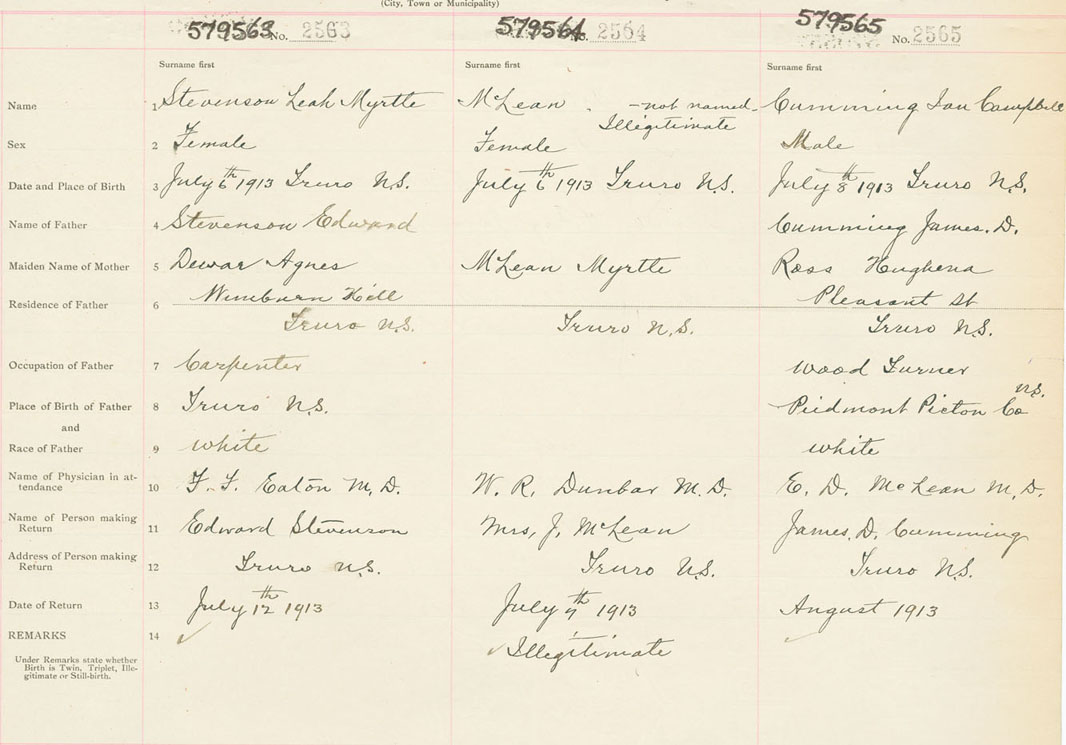 (City, Town or Municipality)
579563 No. 2563 579564 No. 2564 579565 No. 2565
Surname first Surname first Surname first
Name 1 Stevenson Leah Myrtle McLean - not named Cumming Ian Campbell
Illegitimate
Sex 2 Female Female Male
Date and Place of Birth 3 July 6th 1913 Truro N.S. July 6th 1913 Truro N.S. July 8th 1913 Truro N.S.
Name of Father 4 Stevenson Edward Cumming James. D.
Maiden Name of Mother 5 Dewar Agnes McLean Myrtle Ross Hughena
Residence of Father 6 Wimburn Hill Pleasant St
Truro N.S. Truro N.S. Truro N.S.
Occupation of Father 7 Carpenter Wood Turner
Place of Birth of Father 8 Truro N.S. Piedmont Pictou Co N.S.
and
Race of Father 9 white white
Name of Physician in at-
tendance 10 F. F. Eaton M.D. W. R. Dunbar M.D. E. D. McLean M.D.
Name of Person making
Return 11 Edward Stevenson Mrs. J. McLean James. D. Cumming
Address of Person making
Return 12 Truro N.S. Truro N.S. Truro N.S.
Date of Return 13 July 12th 1913 July 9th 1913 August 1913
REMARKS 14 Illegitimate
Under Remarks state whether
Birth is Twin, Triplet, Ille-
gitimate or Still-birth.